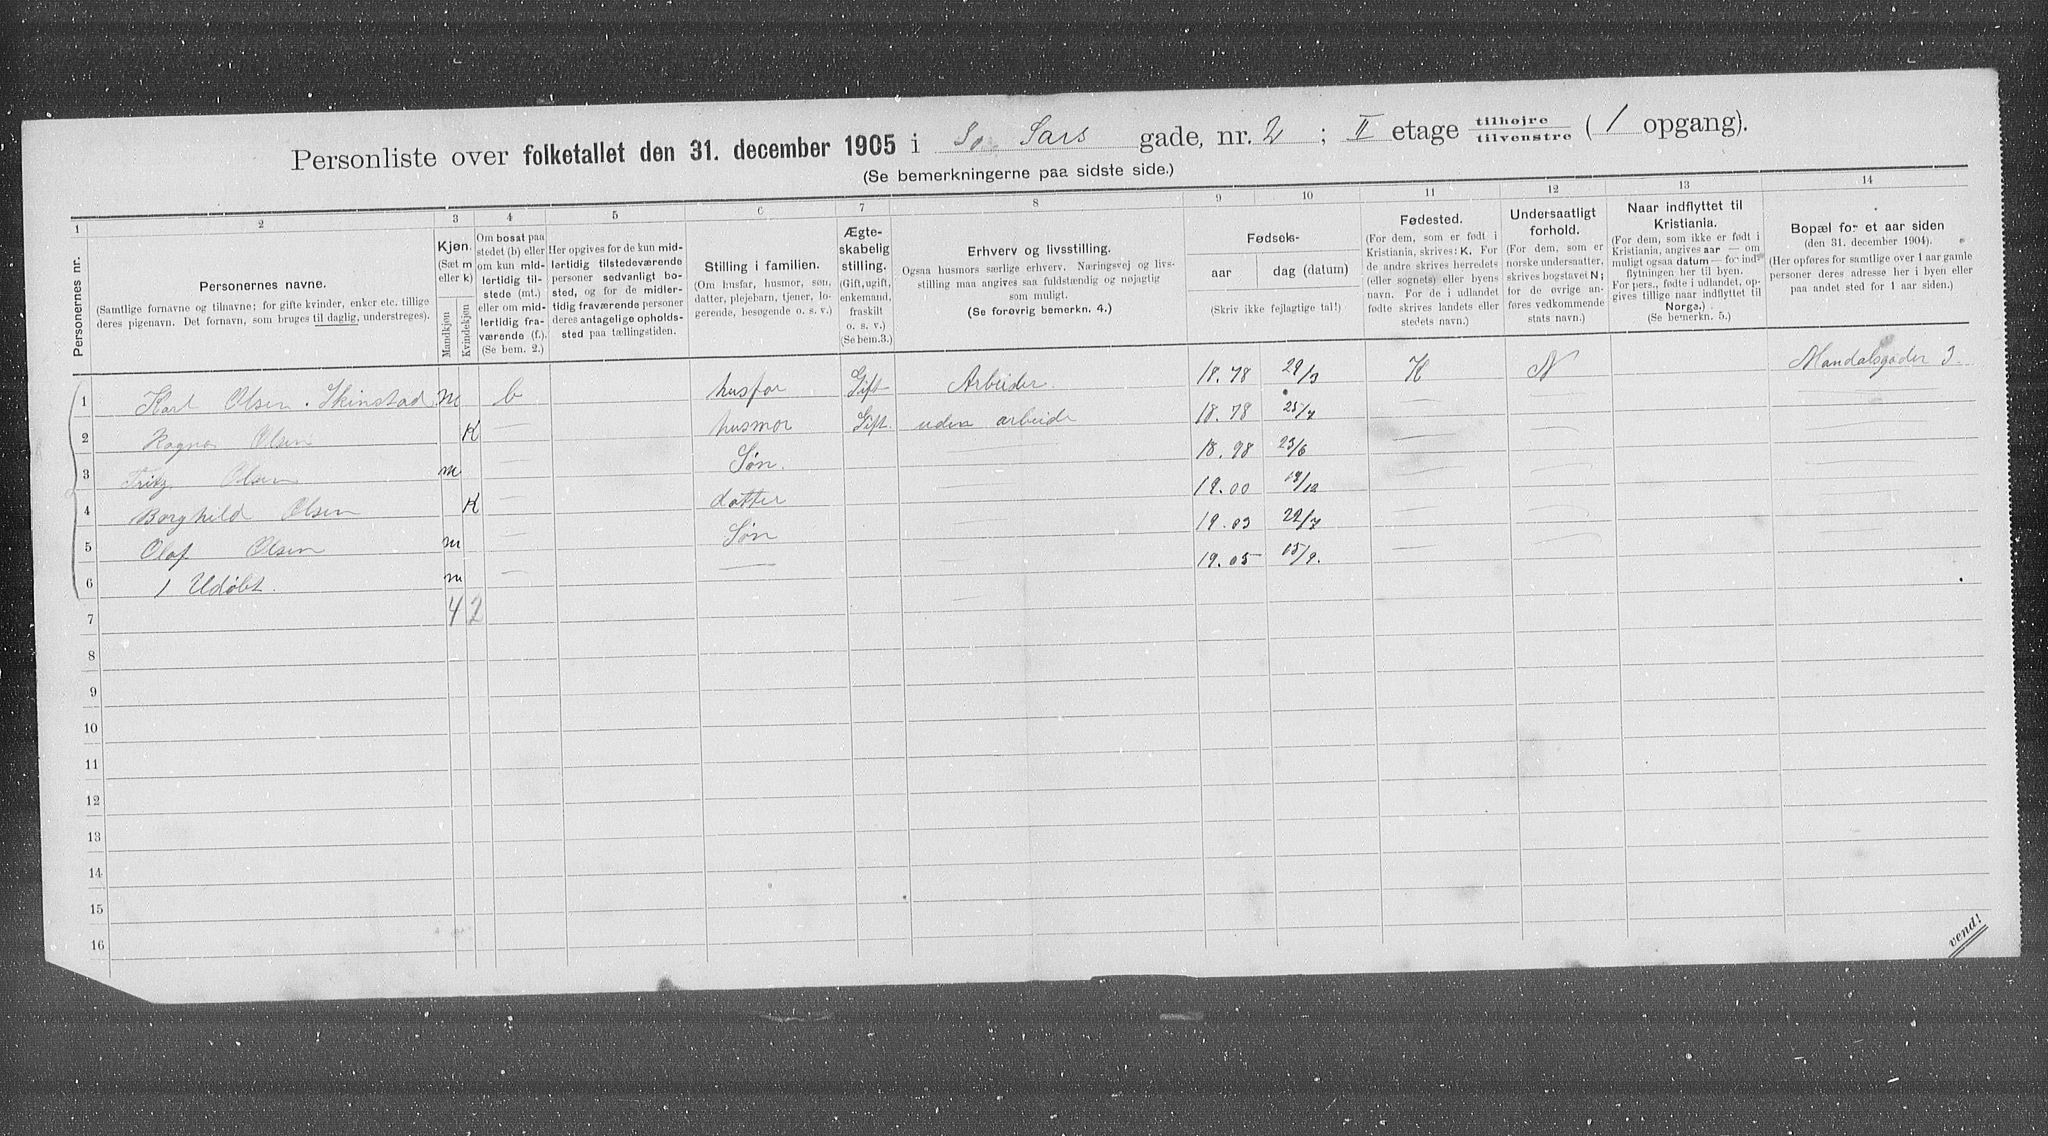 Personliste over folketallet den 31. december 1905 i Sars gade, nr. 2; II etage tilhøjre/tilvenstre (1 opgang).
(Se bemerkningerne paa sidste side.)
1 2 3 4 5 6 7 8 9 10 11 12 13 14
Personernes nr.
Personernes navne.
(Samtlige fornavne og tilnavne; for gifte kvinder, enker etc. tillige
deres pigenavn. Det fornavn, som bruges til daglig, understreges).
Kjøn.
(Sæt m
eller k)
Mandkjøn
Kvindekjøn
Om bosat paa
stedet (b) eller
om kun mid-
lertidig til-
stede (mt.)
eller om mid-
lertidig fra-
værende (f.).
(Se bem. 2.)
Her opgives for de kun mid-
lertidig tilstedeværende
personer sedvanligt bo-
sted, og for de midler-
tidig fraværende personer
deres antagelige opholds-
sted paa tællingstiden.
Stilling i familien.
(Om husfar, husmor, søn,
datter, plejebarn, tjener, lo-
gerende, besøgende o. s. v.)
Ægte-
skabelig
stilling.
(Gift, ugift,
enkemand,
fraskilt
o. s. v.)
(Se bem.3.)
Erhverv og livsstilling.
Ogsaa husmors særlige erhverv. Næringsvej og livs-
stilling maa angives saa fuldstændig og nøjagtig
som muligt.
(Se forøvrig bemerkn. 4.)
Fødsels-
aar
dag (datum)
(Skriv ikke fejlagtige tal!)
Fødested.
(For dem, som er født i
Kristiania, skrives: K. For
de andre skrives herredets
(eller sognets) eller byens
navn. For de i udlandet
fødte skrives landets eller
stedets navn.)
Undersaatligt
forhold.
(For dem, som er
norske undersaatter,
skrives bogstavet N;
for de øvrige an-
føres vedkommende
stats navn.)
Naar indflyttet til
Kristiania.
(For dem, som ikke er født i
Kristiania, angives aar — om
muligt ogsaa datum — for ind-
flytningen her til byen.
For pers., fødte i udlandet, op-
gives tillige naar indflyttet til
Norge.)
(Se bemerkn. 5.)
Bopæl for et aar siden
(den 31. december 1904).
(Her opføres for samtlige over 1 aar gamle
personer deres adresse her i byen eller
paa andet sted for 1 aar siden.)
1 Karl Olsen. Skinstad m b husfar Gift Arbeider 18.78 29/3 K N Mandalsgaden 3.
2 Olsen K — husmor Gift. uden arbeide 18.78 25/7 — — —
3 Olsen m — Søn. 18.98 23/6 — — —
4 Borghild Olsen K — datter 19.00 19/12 — — —
5 Olaf Olsen m — Søn 19.03 22/7 — — —
6 1 Udøbt. m — — 19.05 15/9. — —
7 4 2
8
9
10
11
12
13
14
15
16
vend!